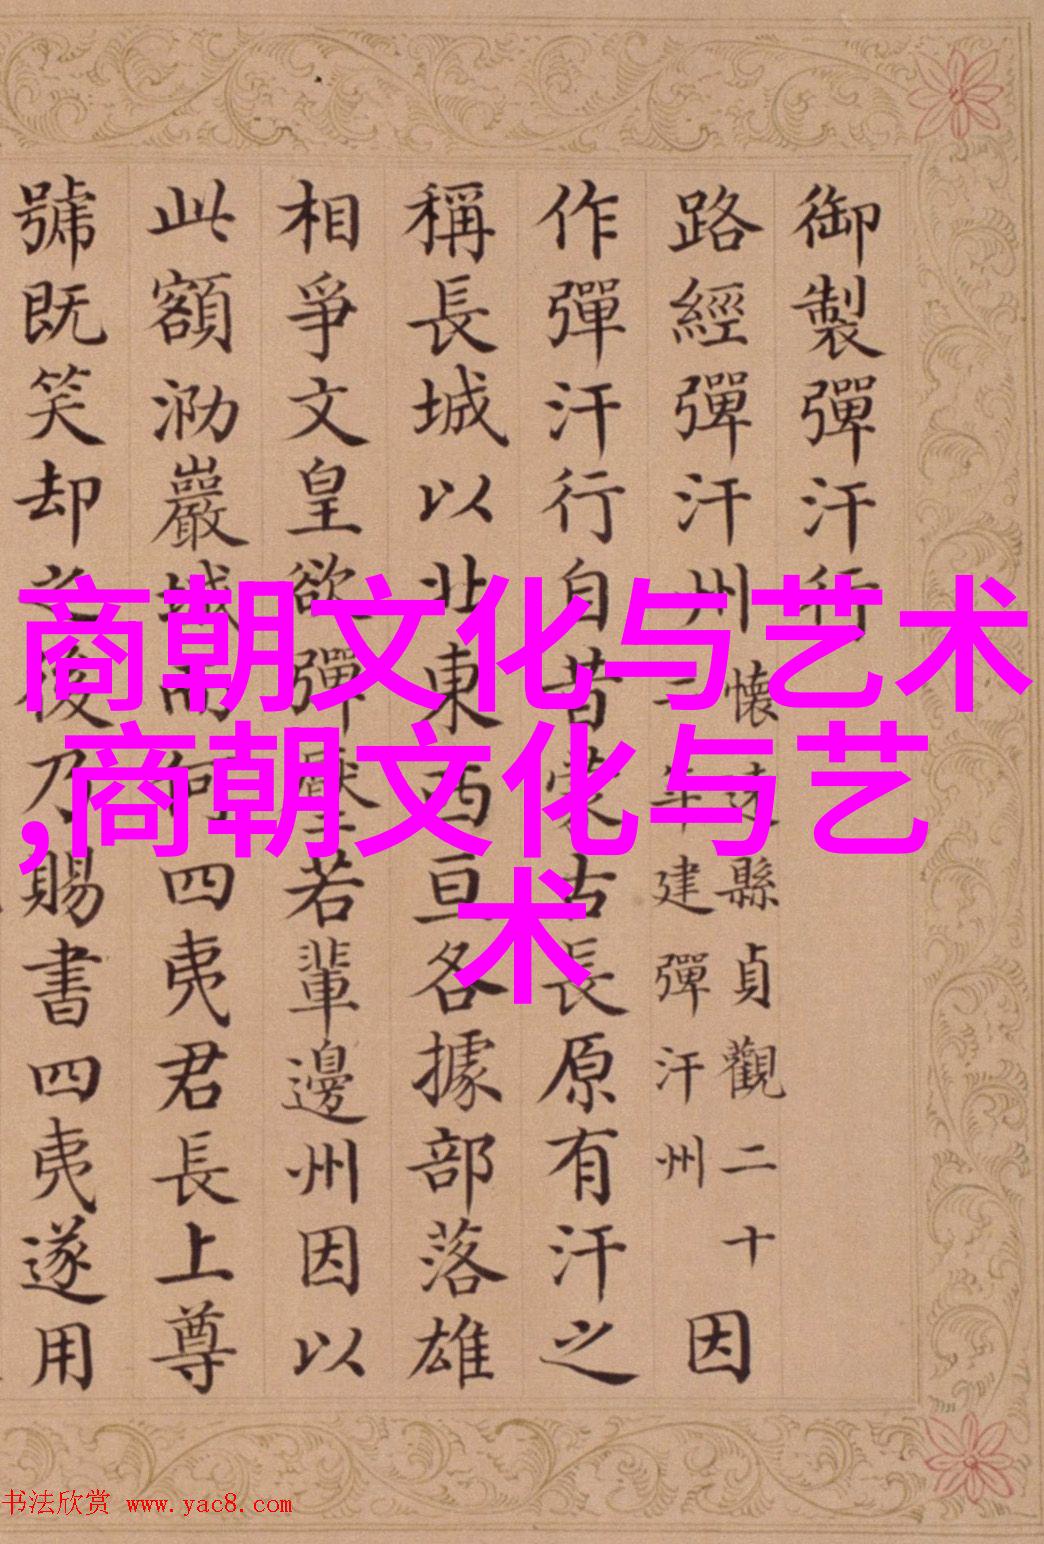 御製彈汗行
路經彈汗州
懷遠縣貞觀二十
一年建彈汗州
因
作彈汗行自昔蒙古長原有汗之
稱長城以北東西亘各據部落雄
相爭文皇欲彈壓若輩邊州因以
此額泐巖城而何四夷君長上尊
號既笑却之後乃賜書四夷遂用
商朝文化与艺术
,商朝文化与艺
术
书法欣赏 www.yac8.com